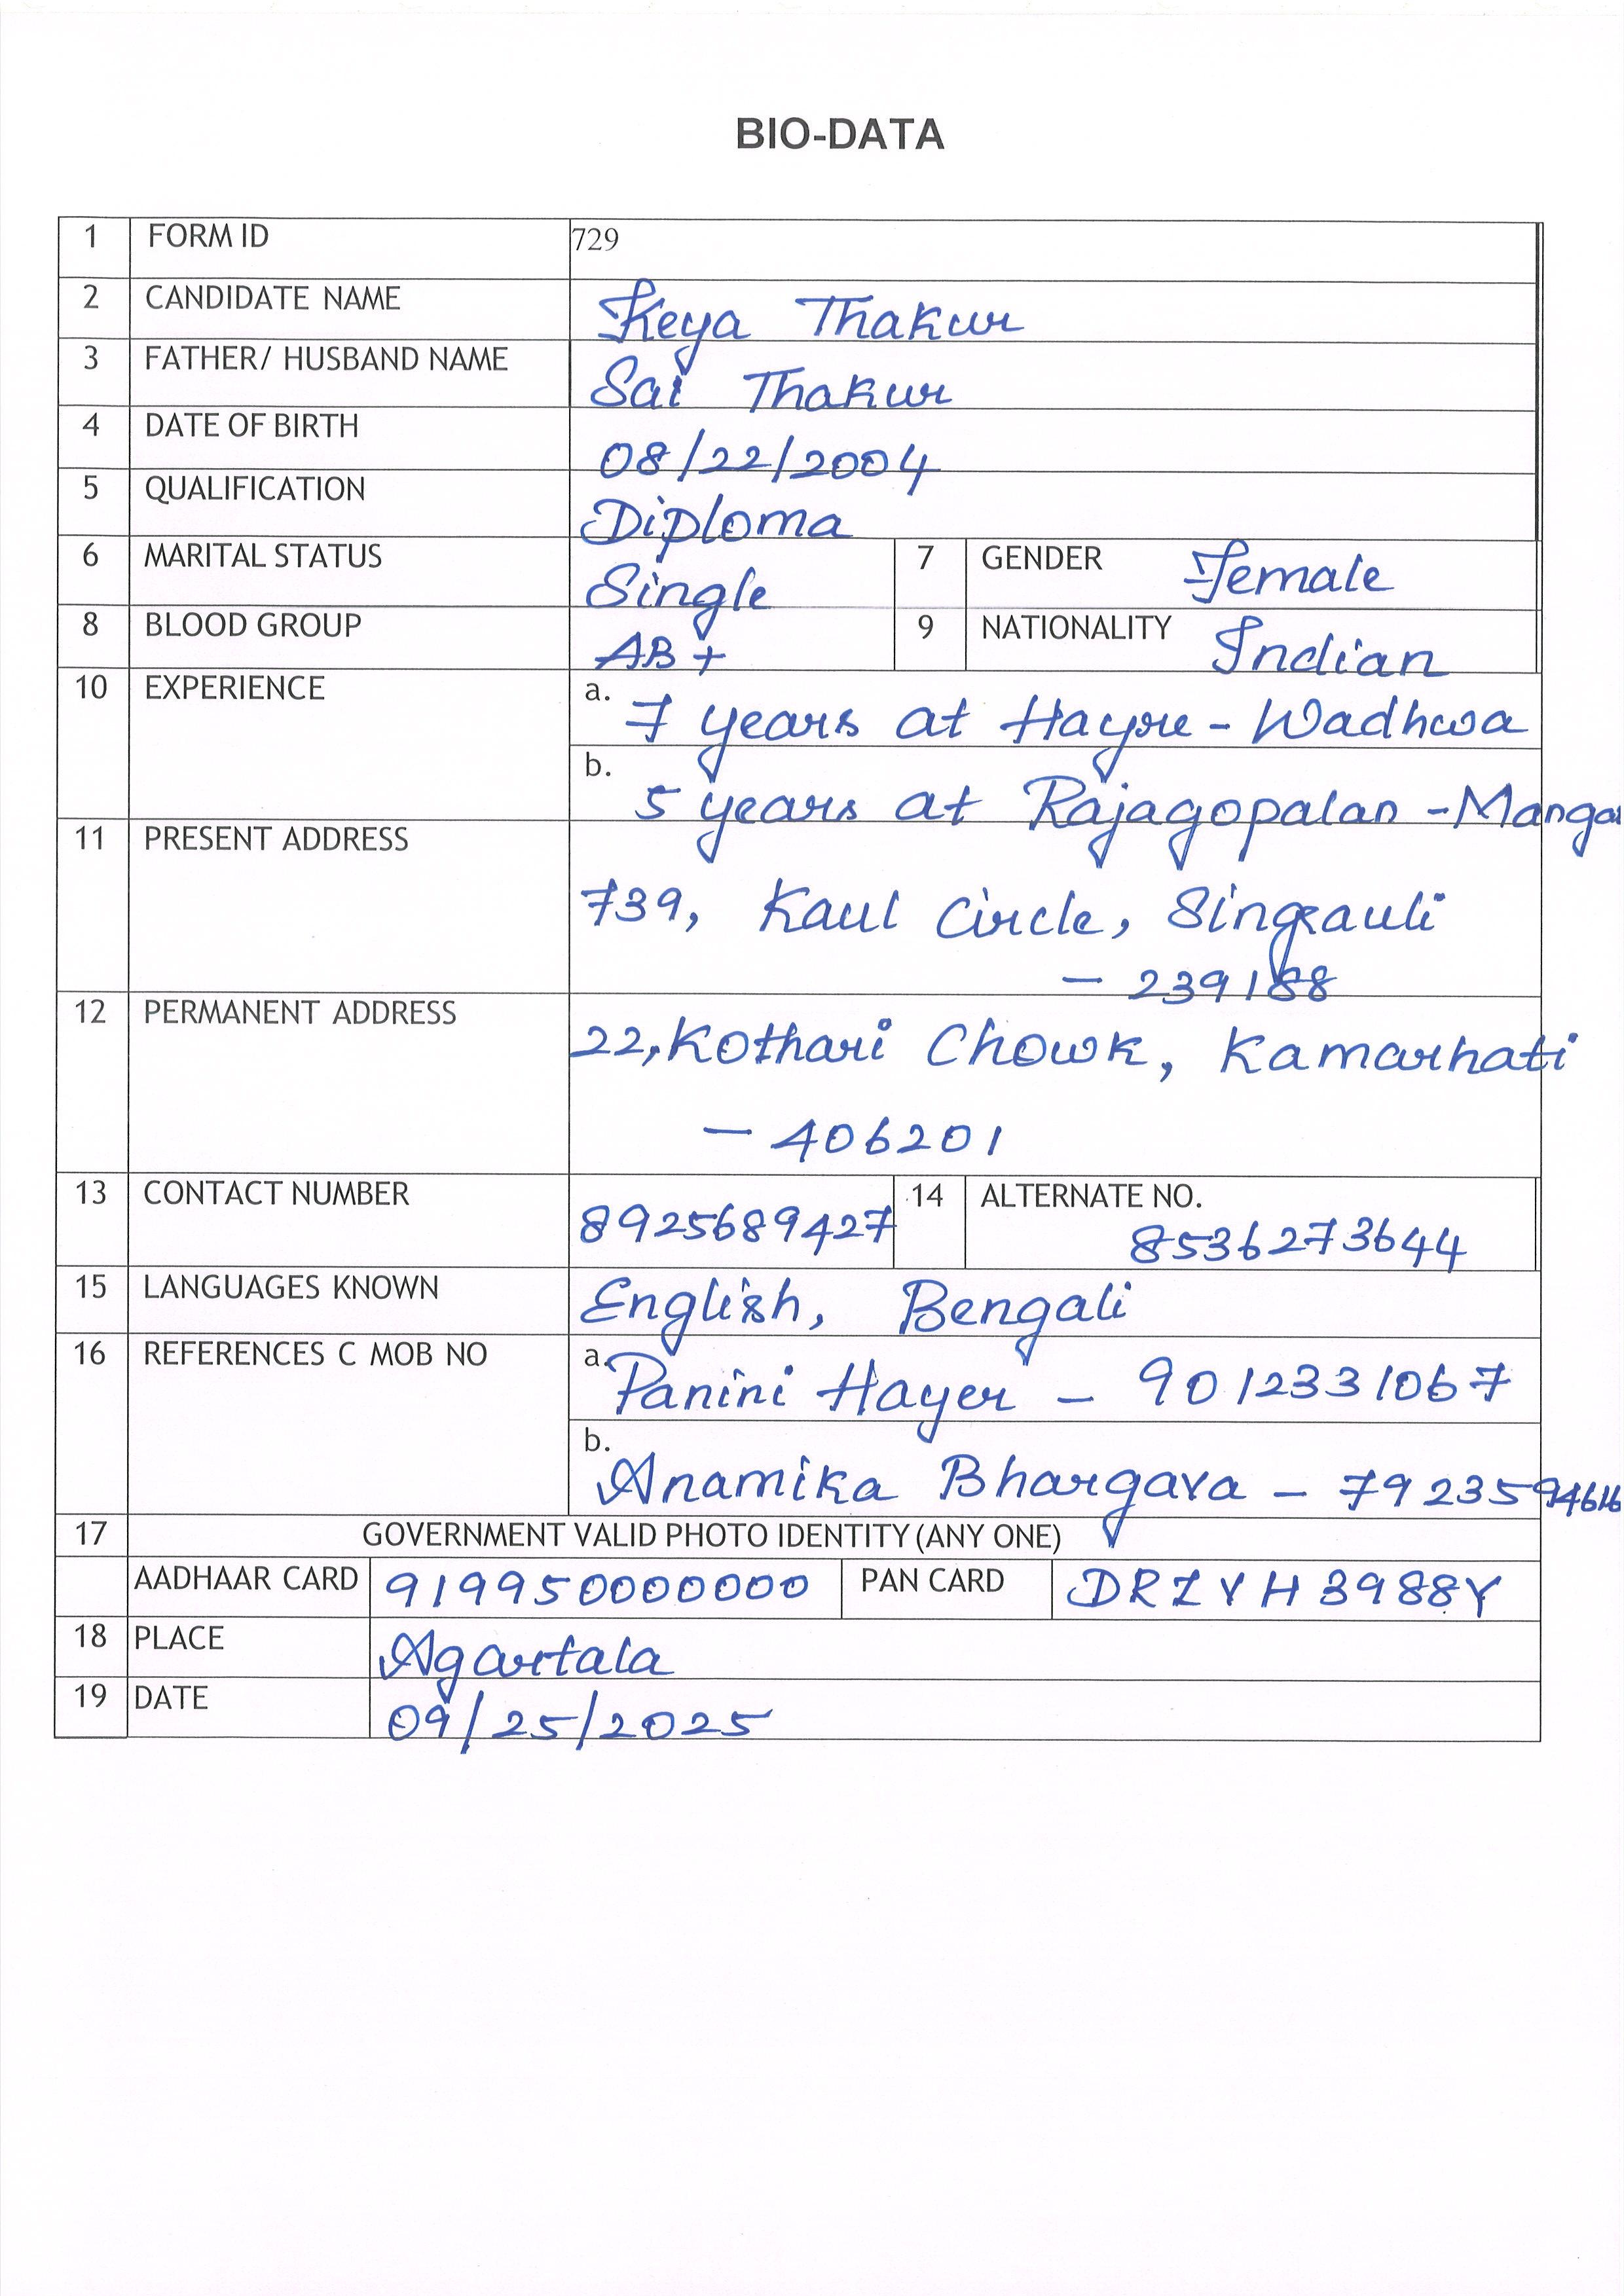 BIO-DATA
1 FORM ID 729
2 CANDIDATE NAME Keya Thakur
3 FATHER/ HUSBAND NAME Sai Thakur
4 DATE OF BIRTH 08/22/2004
5 QUALIFICATION Diploma
6 MARITAL STATUS Single 7 GENDER Female
8 BLOOD GROUP AB+ 9 NATIONALITY Indian
10 EXPERIENCE a. 7 years at Hayre - Wadhwa
b. 5 years at Rajagopalan -
11 PRESENT ADDRESS
739, Kaul Circle, Singrauli
- 239188
12 PERMANENT ADDRESS 22, Kothari Chowk, Kamarhati
- 406201
13 CONTACT NUMBER 8925689427 14 ALTERNATE NO. 8536273644
15 LANGUAGES KNOWN English, Bengali
16 REFERENCES C MOB NO a. Panini Hayer - 9012331067
b. Anamika Bhargava -
17 GOVERNMENT VALID PHOTO IDENTITY (ANY ONE)
AADHAAR CARD 919950000000 PAN CARD DRZYH3988Y
18 PLACE Agartala
19 DATE 09/25/2025